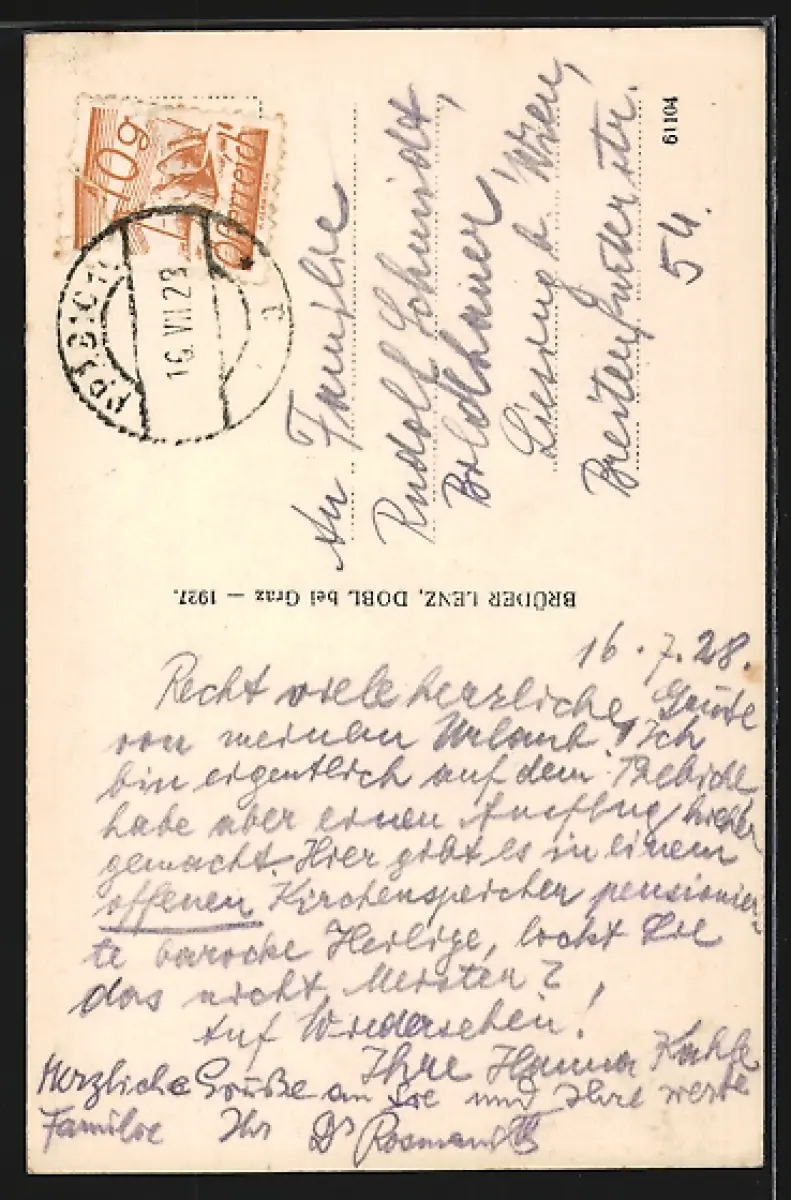 10g
Österreich
16.VII.28
a
An Familie
Rudolf Schmidt,
Bildhauer,
Liesing b. Wien,
Breitenfurterstr.
54.
61104
BRÜDER LENZ, DOBL bei Graz — 1927.
16.7.28.
Recht viele herzliche Grüße
von meinem Urlaub! Ich
bin eigentlich auf dem
habe aber einen Ausflug hieher
gemacht. Hier gibt es in einem
offenen Kirchenspeicher pensionier-
te barocke Heilige, lockt Sie
das nicht, Meister?
Auf Wiedersehen!
Ihre Hanna
Herzliche Grüße an Sie und Ihre werte
Familie Ihr Dr